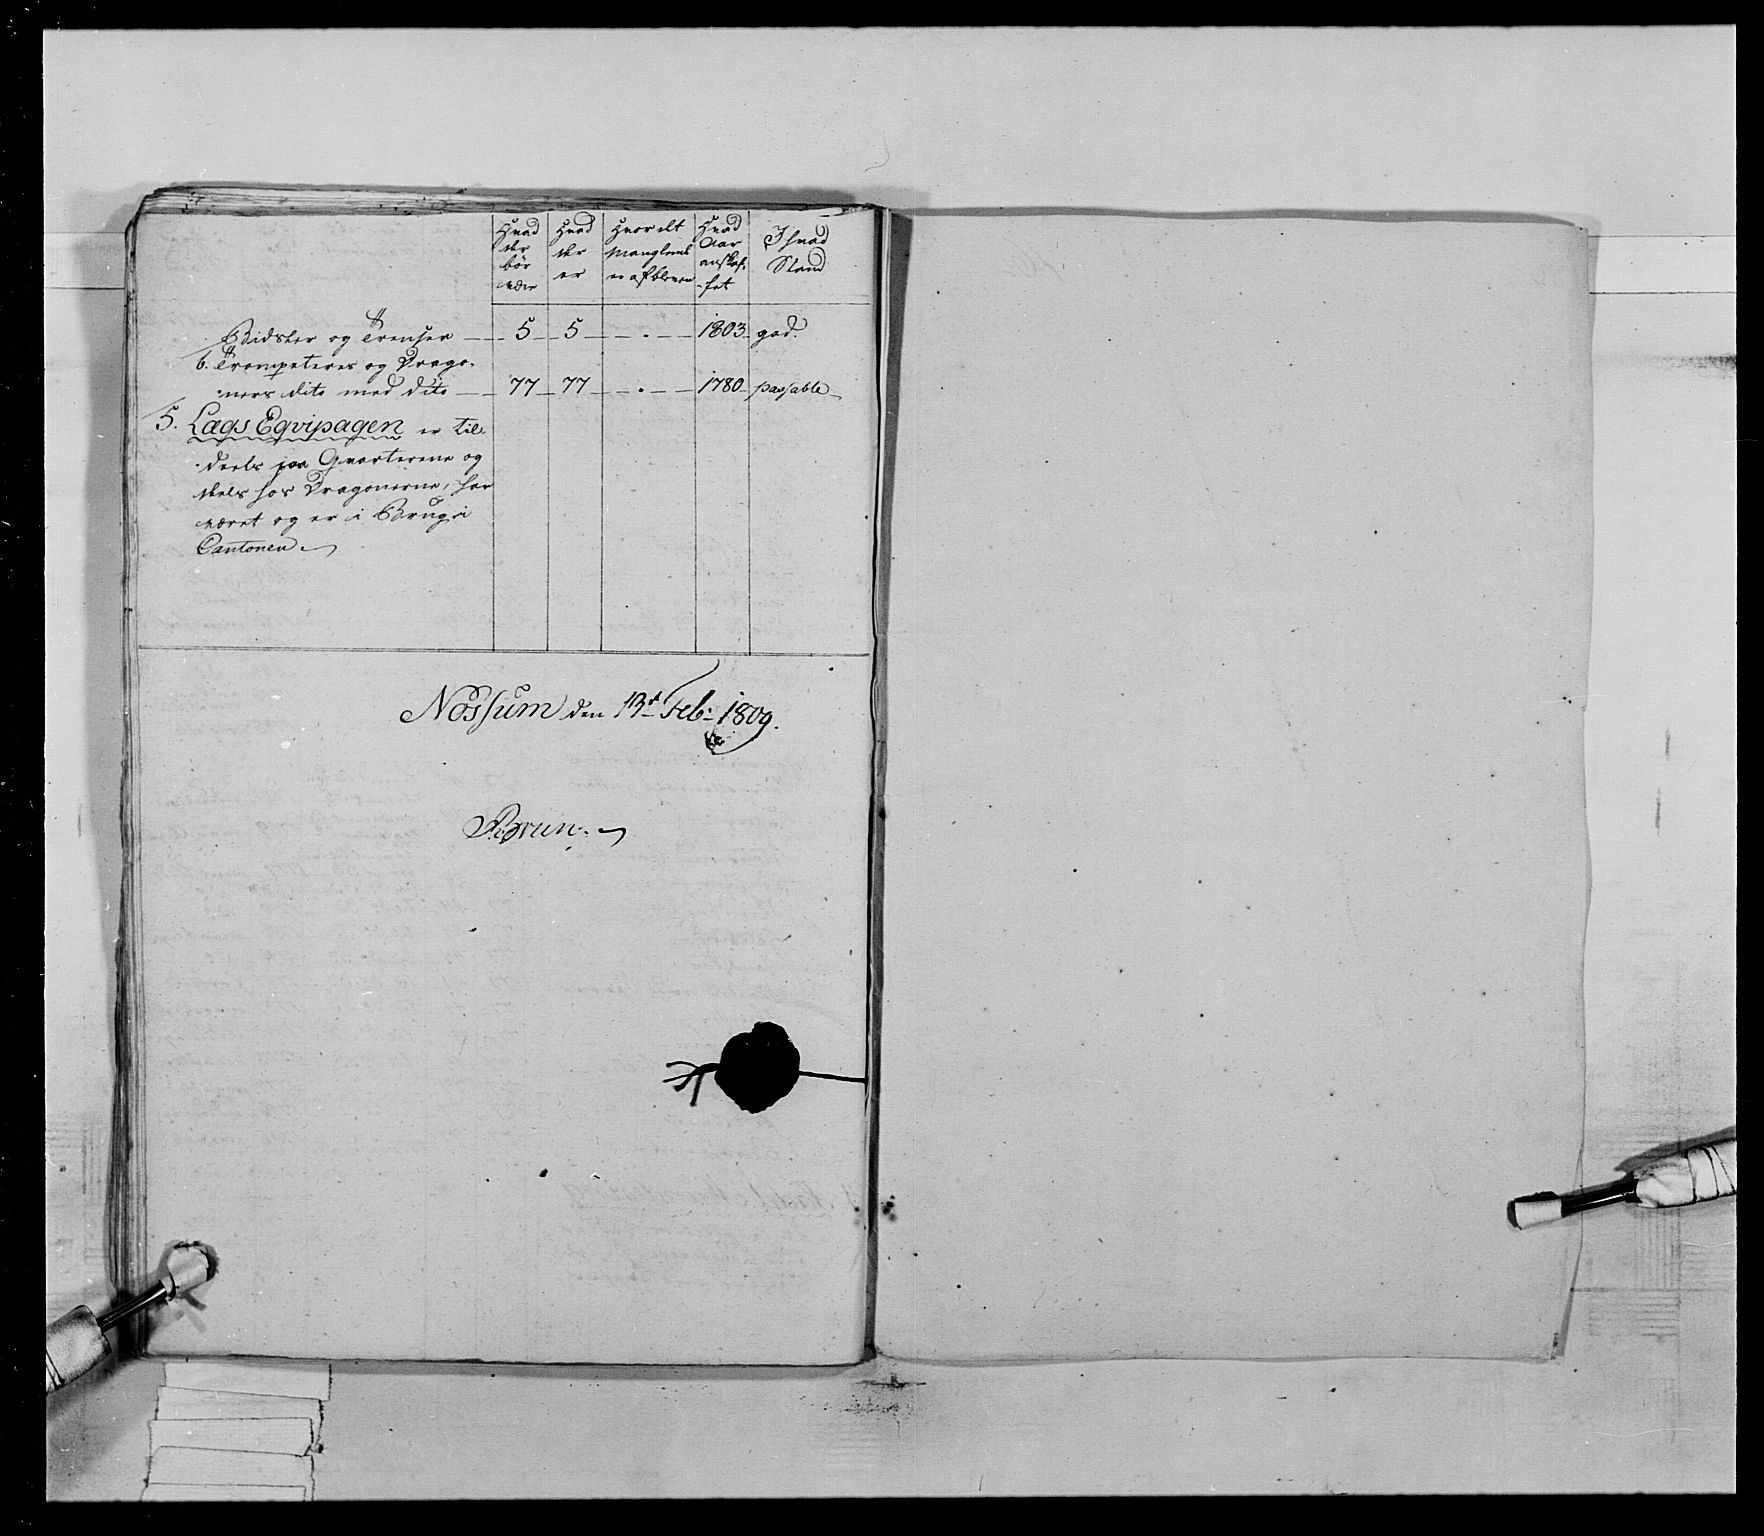 Hvad der bör være
Hvad der er
Hvor det Manglende er afbleven
Hvad Aar anskaf-fet
I hvad Stand
Bidsler og Trenser — 5 — 5 — . — 1803. god.
b. Trompeteres og Drago-
ners dito med dito — 77 — 77 — . — 1780 — passable —
5. Lægs Eqvipagen er til
deels paa Qvarterene og
deels hos Dragonerne, har
været og er i Brug i
Cantonen.
Nossum den 13d Feb: 1809.
Brun.